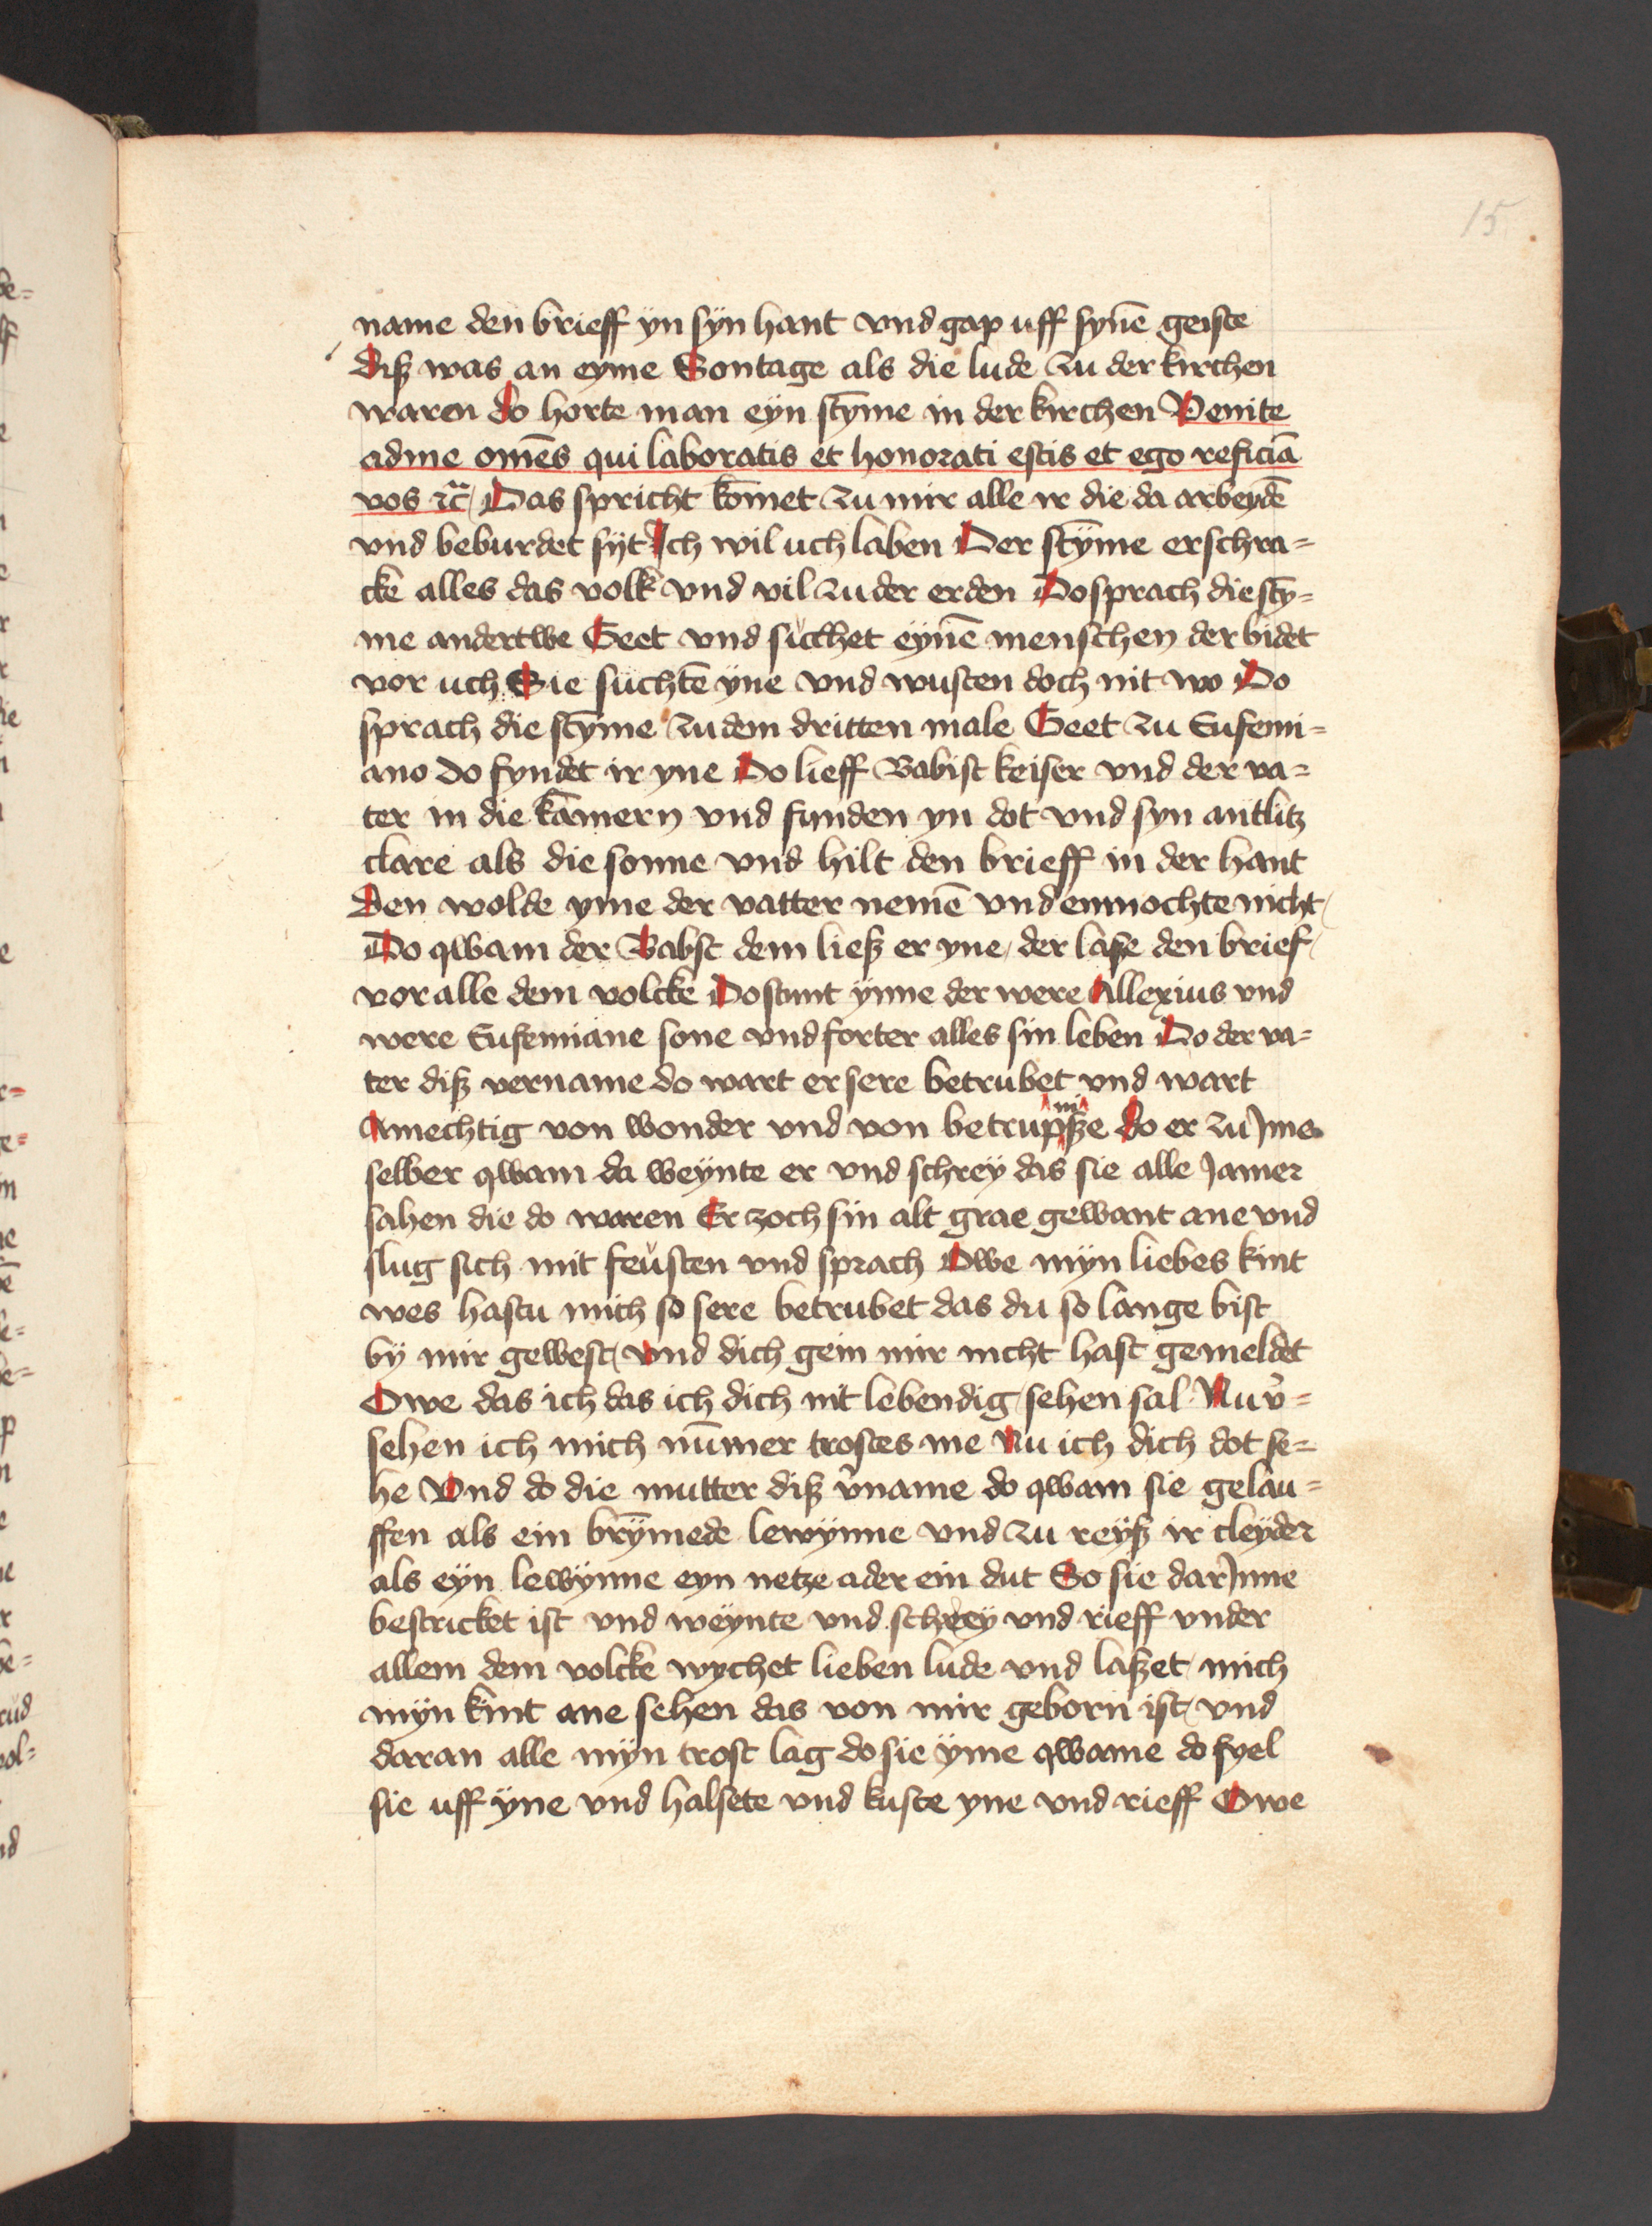 15
name den brieff ÿn sÿn hant vnd gap uff synē geiste
diß was an eyme Sontage als die lude zu der kirchen
waren do horte man eÿn stȳme in der kirchen Venite
adme om̄es qui laboratis et honorati estis et ego reficiā
vos ⁊c̄ / Das spricht kōmet zu mir alle ir die da arbeydē
vnd beburdet sÿt Ich wil uch laben Der stȳme erschra=
cke alles das volk vnd vil zu der erden Do sprach die stÿ=
me andertwe Geet vnd sücchet eÿnē menschen der bidet
vor uch Sie süchtē ÿne vnd wusten doch nit wo Do
sprach die stȳme zu dem dritten male Geet zu Eufemi=
ano do fyndet ir yne Do lieff Babist keiser vnd der va=
ter in die kāmern vnd funden yn dot vnd syn antlitz
clare als die sonne vnd hilt den brieff in der hant
Den wolde yme der vatter nemē vnd enmochte nicht /
Do qwam der Babst dem ließ er yne / der lase den brief /
vor alle dem volcke Do stunt ÿnne der were Allexius vnd
were Eufemiane sone vnd forter alles sin leben Do der va=
ter diß vername do wart er sere betrubet vnd wart
Amechtig von wonder vnd von betrupniße do er zu Jme
selber qwam da weÿnte er vnd schreÿ das sie alle Jamer
sahen die do waren Er zoch sin alt grae gewant ane vnd
slug sich mit feüsten vnd sprach Owe mÿn liebes kint
wes hastu mich so sere betrubet das du so lange bist
bÿ mir gewest / vnd dich gein mir nicht hast gemeldet
Owe das ich das ich dich nit lebendig sehen sal Nu v̓=
sehen ich mich nūmer trostes me Nu ich dich dot se=
he Vnd do die mutter diß v̓name do qwam sie gelau=
ffen als ein brȳmede lewÿnne vnd zu reÿß ir cleÿder
als eÿn lewÿnne eyn netze ader ein dut So sie dar Jnne
bestricket ist vnd weÿnte vnd schreÿ vnd rieff vnder
allem dem volcke wychet lieben lude vnd laßet mich
mÿn kint ane sehen das von mir geborn ist / vnd
daran alle mÿn trost lag do sie ÿme qwame do fyel
sie uff ÿne vnd halsete vnd kuste yne vnd rieff Owe